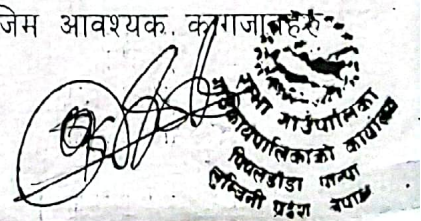 जिम आवश्यक कागजातहरु
गाउँपालिका
गाउँ कार्यपालिकाको कार्यालय
पिपलडाँडा पाल्पा
लुम्बिनी प्रदेश नेपाल